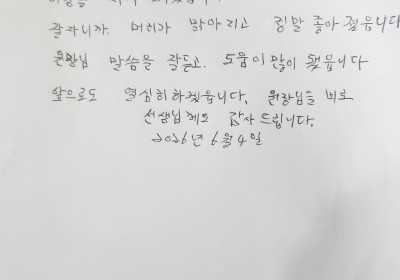 잘자니까. 머리가 맑아지고 정말 좋아졌읍니다
원장님 말씀을 잘듣고. 도움이 많이 됐읍니다
앞으로도 열심히하겠읍니다. 원장님을 비로
선생님께도 감사드립니다.
2026년 6월 4일